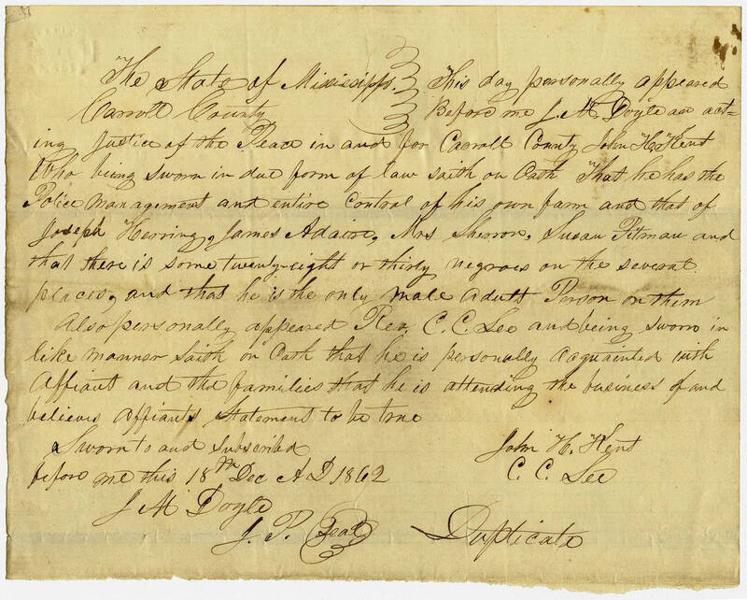 The State of Mississippi. This day personally appeared
Carroll County Before me J. M. Doyle an act=
ing Justice of the Peace in and for Carroll County John H. Kent
Who being sworn in due form of law saith on Oath That he has the
Police management and entire control of his own farm and that of
Joseph Herring, James Adair, Mrs Sherron, Susan Pitman and
that there is some twenty-eight or thirty negroes on the several
places, and that he is the only male adult Person on them
Also personally appeared Rev. C. C. Lee and being sworn in
like manner saith on Oath that he is personally acquainted with
Affiant and the families that he is attending the business of and
believes affiants statement to be true
Sworn to and subscribed
before me this 18th Dec A D 1862
John H. Kent
C. C. Lee
J M Doyle
J. P. Seal
Duplicate